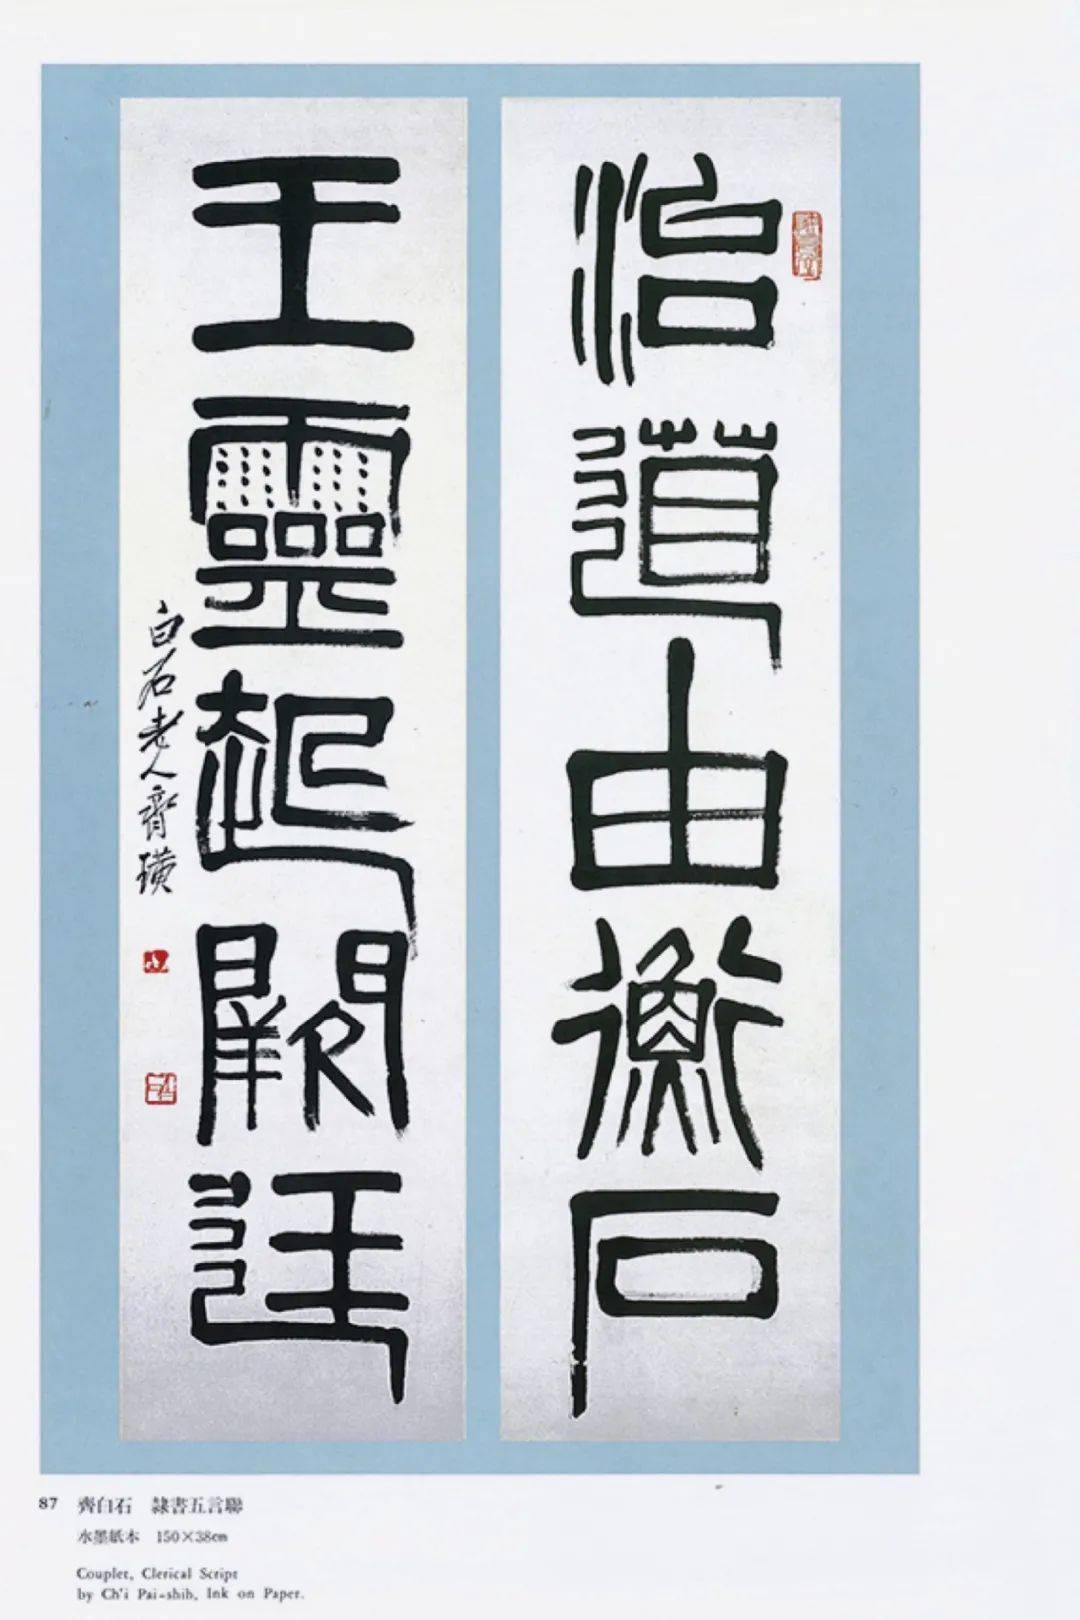 治道由衡石
王靈起闕廷
白石老人齊璜
87 齊白石 隸書五言聯
水墨紙本 150×38cm
Couplet, Clerical Script
by Ch'i Pai-shih, Ink on Paper.